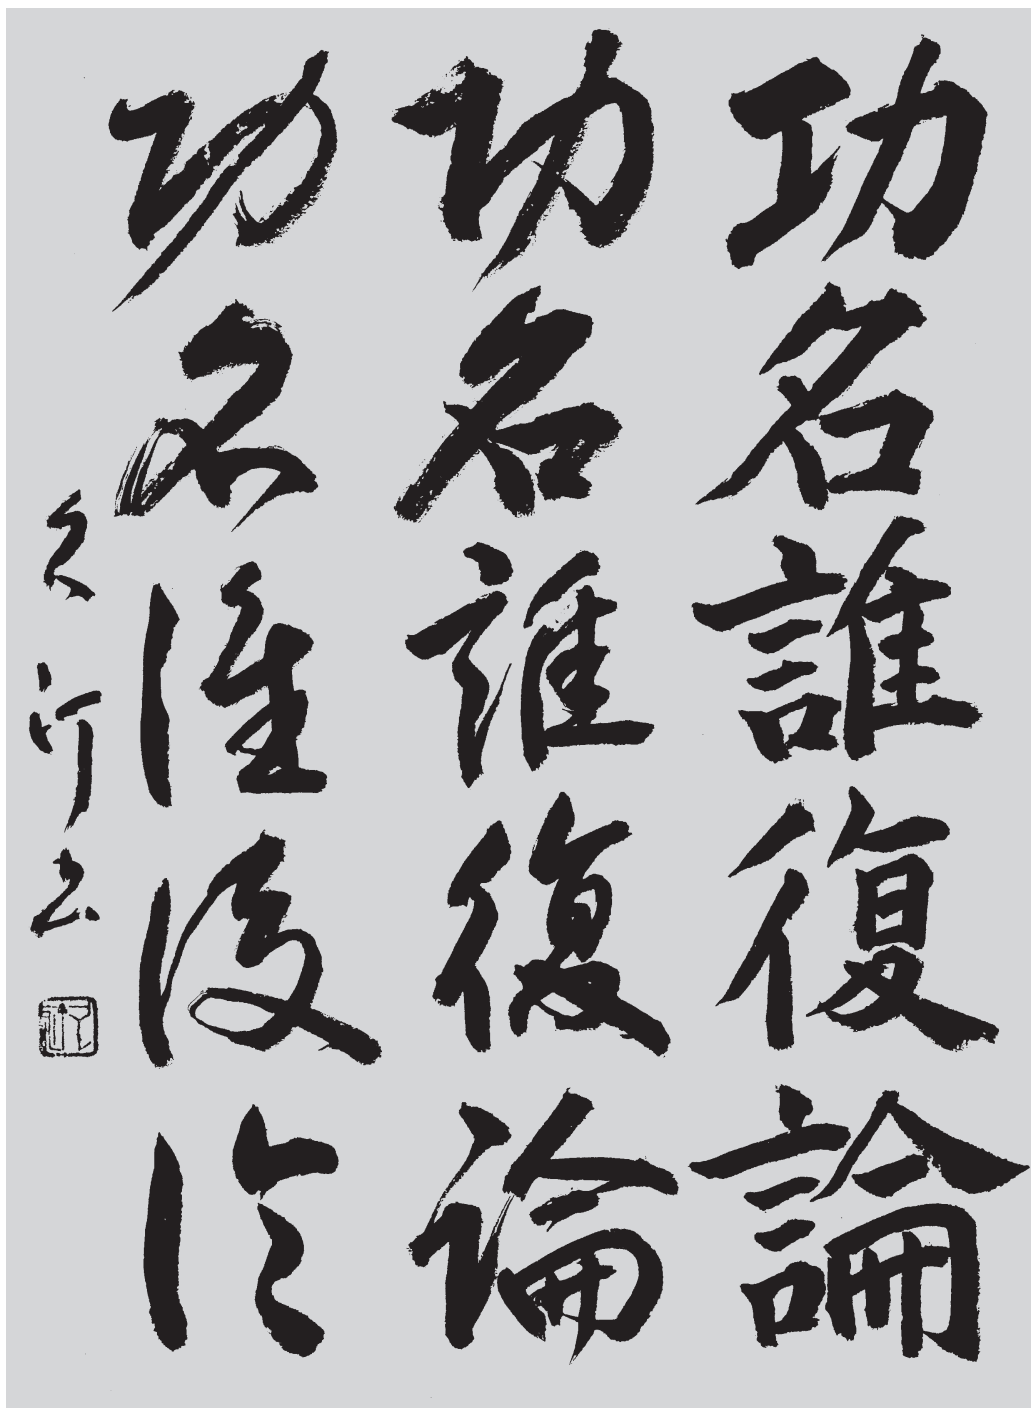 功名誰復論
功名誰復論
功名誰復論